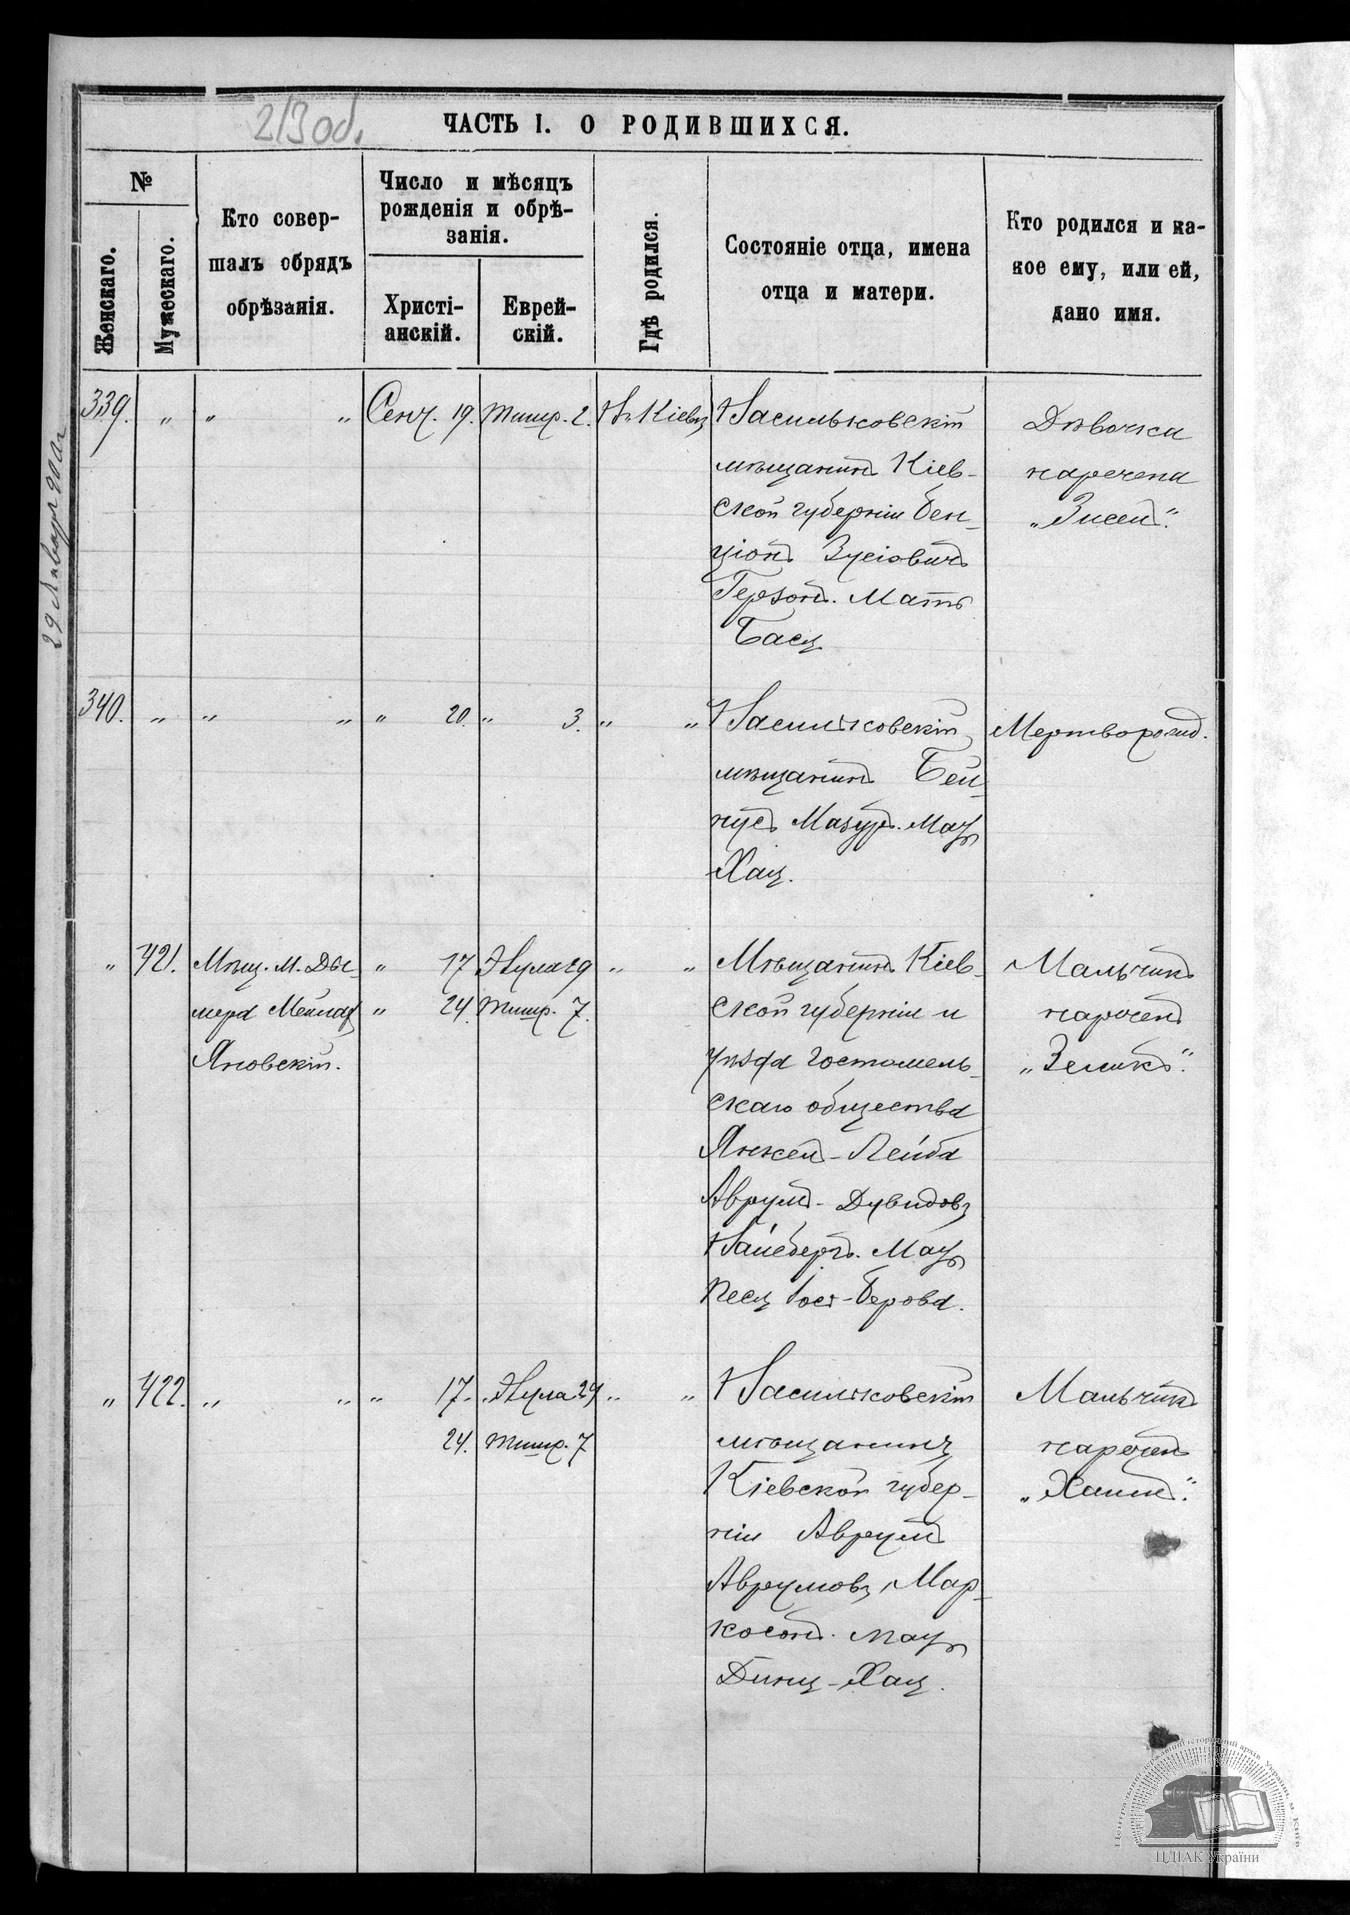 213 об.
ЧАСТЬ I. О РОДИВШИХСЯ.
№
Женскаго.
Мужескаго.
Кто совер-
шалъ обрядъ
обрѣзанія.
Число и мѣсяцъ
рожденія и обрѣ-
занія.
Христі-
анскій.
Еврей-
скій.
Гдѣ родился.
Состояніе отца, имена
отца и матери.
Кто родился и ка-
кое ему, или ей,
дано имя.
339. " " " Сент. 19. Тишр. 2. Въ Кіевѣ
Васильковскій
мѣщанинъ Кіев-
ской губерніи Бен-
ціонъ Зусіовичъ
Герзонъ. Мать
Бася
Дѣвочка
наречена
"Зисей".
340. " " " " 20. " 3. " "
Васильковскій
мѣщанинъ Бей-
нусъ Мазуръ. Мать
Хая.
Мертворожд.
" 421. Мѣщ. м. Ды- " 17 Элула 29 " "
мера Мейлахъ " 24. Тишр. 7.
Яновскій.
Мѣщанинъ Кіев-
ской губерніи и
уѣзда Гостомель-
скаго общества
Янкель-Лейба
Аврумъ-Дувидовъ
Вайсбергъ. Мать
Песя Берова.
Мальчикъ
нареченъ
"Зеликъ".
" 422. " " " 17. Элула 29 " "
24. Тишр. 7
Васильковскій
мѣщанинъ
Кіевской губер-
ніи Аврумъ
Аврумовъ Мар-
косонъ. Мать
Бина-Хая.
Мальчикъ
нареченъ
"Хаимъ".
29 Января
Центральний державний історичний архів України, м. Київ
ЦДІАК України